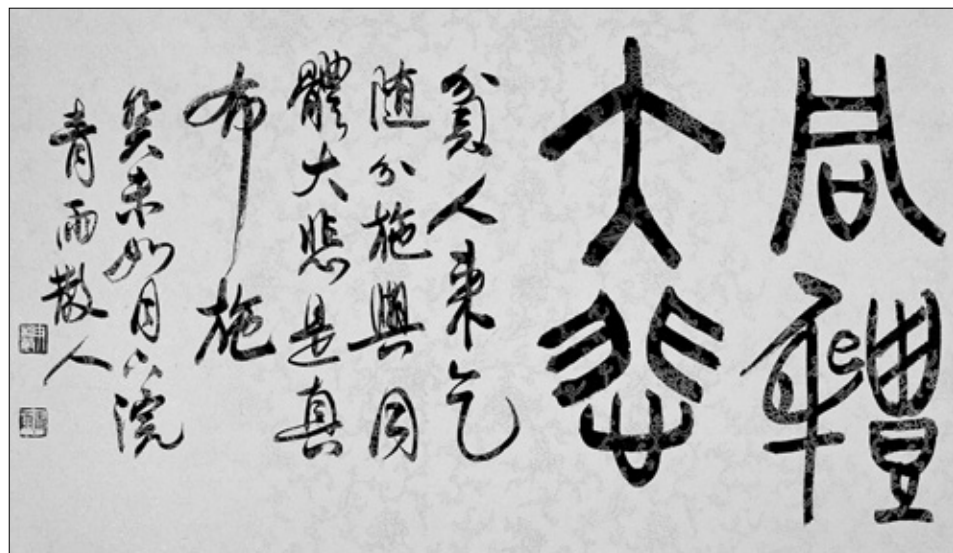 同體
大悲
貧人來乞
随分施與同
體大悲是真
布施
癸未如月下浣
青雨散人